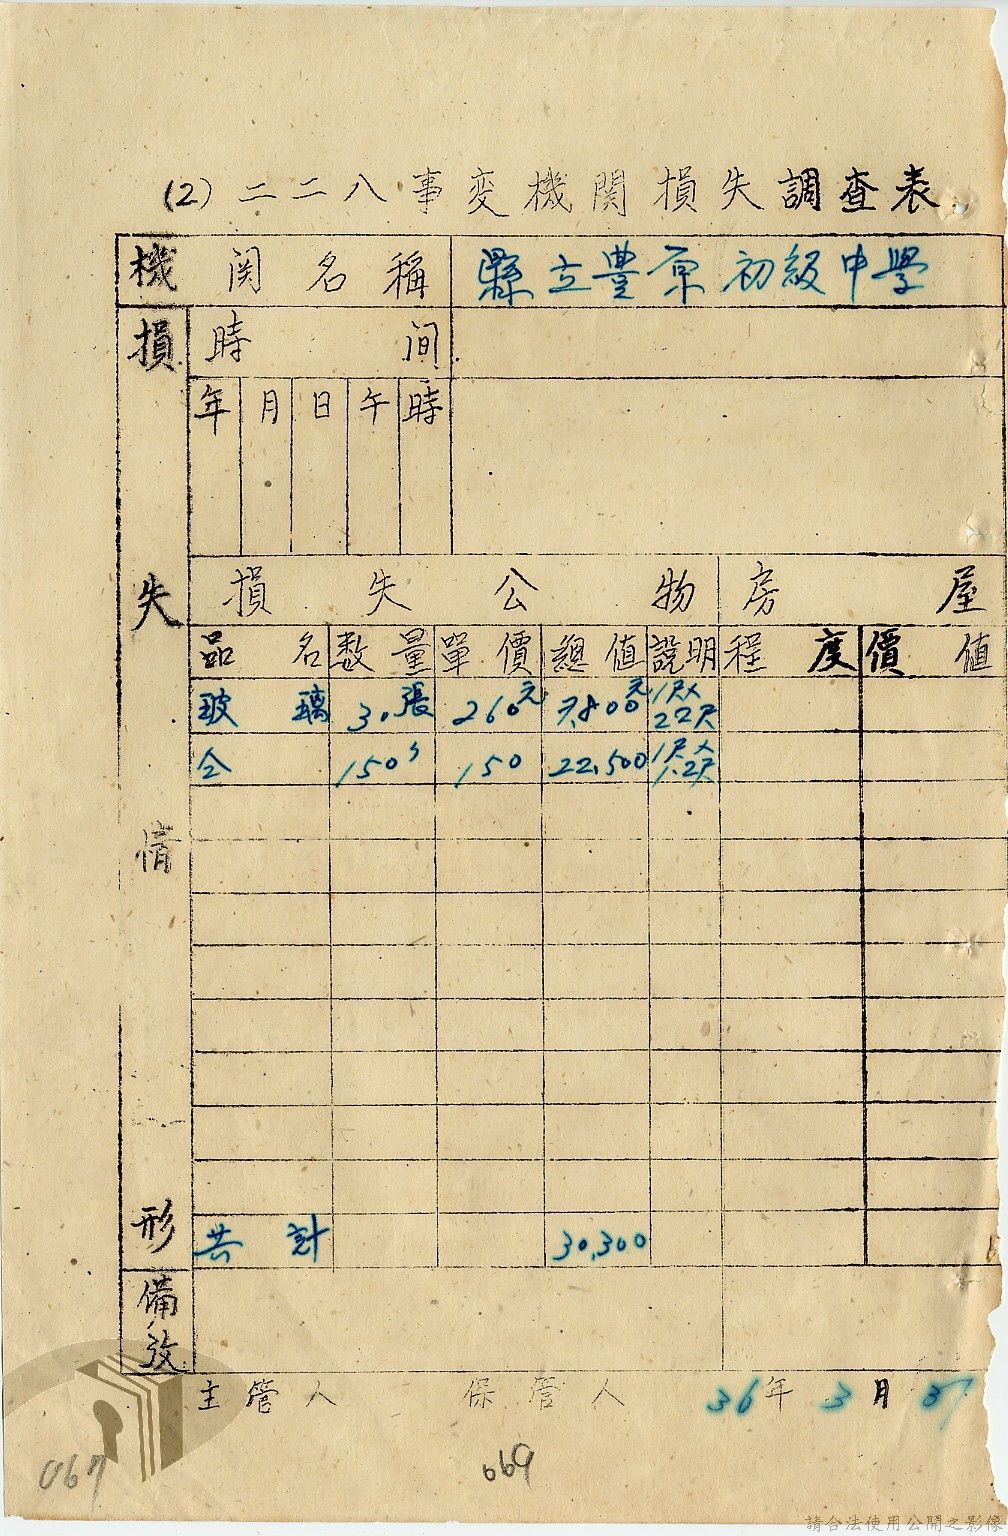 (2)二二八事変機関損失調査表
機関名稱 縣立豊原初級中學
損失情形
時間
年 月 日 午 時
損失公物 房屋
品名 数量 單價 總值 說明 程度 價值
玻璃 30張 260元 7,800元 1尺× 2.2尺
仝 150〃 150 22,500 1尺× 1.2尺
共計 30,300
備攷
主管人 保管人 36年3月
067
069
請合法使用公開之影像